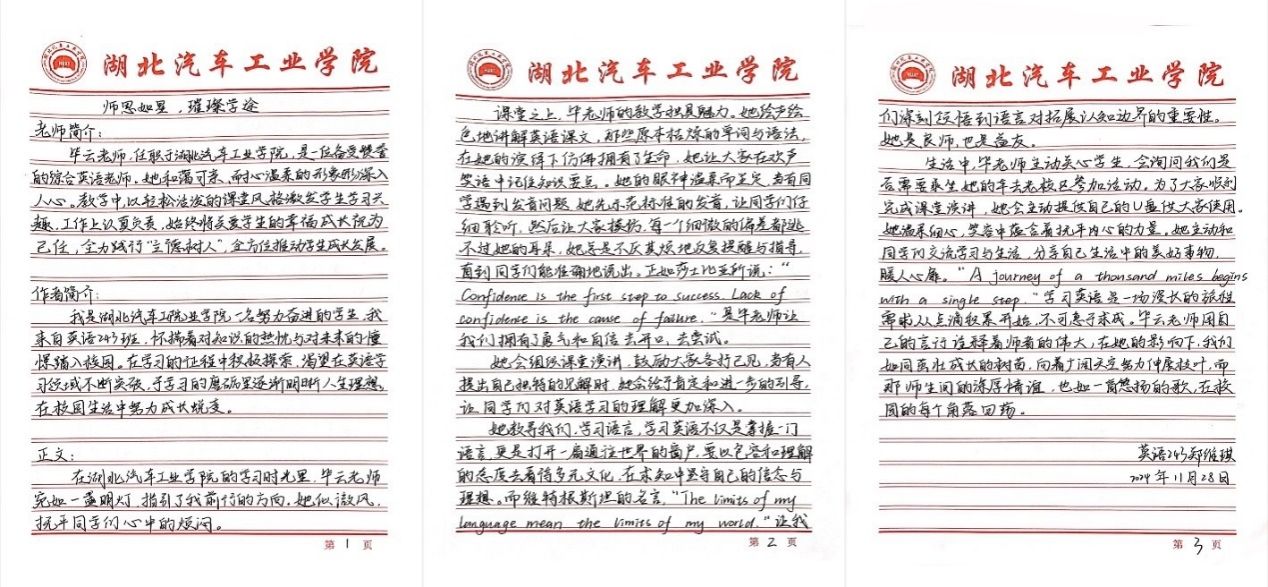 湖北汽车工业学院
师恩如星，璀璨学途
老师简介：
毕云老师，任职于湖北汽车工业学院，是一位备受赞誉
的综合英语老师。她和蔼可亲，耐心温柔的形象形深入
人心。教学中，以轻松活泼的课堂风格激发学生学习兴
趣，工作上认真负责，始终将关爱学生的幸福成长视为
己任，全力践行“立德树人”，全方位推动学生成长发展。
作者简介：
我是湖北汽车工院业学院一名努力奋进的学生，我
来自英语243班，怀揣着对知识的热忱与对未来的憧
憬踏入校园。在学习的征程中积极探索，渴望在英语学
习领域不断突破，于学习的磨砺里逐渐明晰人生理想，
在校园生活中努力成长蜕变。
正文：
在湖北汽车工业学院的学习时光里，毕云老师
宛如一盏明灯，指引了我前行的方向。她似微风，
抚平同学们心中的烦闷。
第1页
湖北汽车工业学院
课堂之上，毕老师的教学独具魅力。她绘声绘
色地讲解英语课文，那些原本枯燥的单词与语法，
在她的演绎下仿佛拥有了生命，她让大家在欢声
笑语中记住知识要点。她的眼神温柔而坚定，当有同
学遇到发音问题，她先示范标准的发音，让同学们仔
细聆听，然后让大家模仿，每一个细微的偏差都逃
不过她的耳朵，她总是不厌其烦地反复提醒与指导，
直到同学们能准确地说出。正如莎士比亚所说：“
Confidence is the first step to success. Lack of
confidence is the cause of failure.”是毕老师让
我们拥有了勇气和自信去开口，去尝试。
她会组织课堂演讲，鼓励大家各抒己见，当有人
提出自己独特的见解时，她会给予肯定和进一步的引导，
让同学们对英语学习的理解更加深入。
她教导我们，学习语言，学习英语不仅是掌握一门
语言，更是打开一扇通往世界的窗户，要以包容和理解
的态度去看待多元文化，在求知中坚守自己的信念与
理想。而维特根斯坦的名言，“The limits of my
language mean the limits of my world.”让我
第2页
湖北汽车工业学院
们深刻领悟到语言对拓展认知边界的重要性。
她是良师，也是益友。
生活中，毕老师主动关心学生，会询问我们是
否需要乘坐她的车去老校区参加活动。为了大家顺利
完成课堂演讲，她会主动提供自己的U盘供大家使用。
她温柔细心，笑容中蕴含着抚平内心的力量。她主动和
同学们交流学习与生活，分享自己生活中的美好事物，
暖人心扉。“A journey of a thousand miles begins
with a single step.”学习英语是一场漫长的旅程
需求从点滴积累开始，不可急于求成。毕云老师用自
己的言行诠释着师者的伟大，在她的影响下，我们
如同茁壮成长的树苗，向着广阔天空努力伸展枝叶，而
那师生间的深厚情谊，也如一首悠扬的歌，在校
园的每个角落回荡。
英语243郑维琪
2024年11月28日
第3页